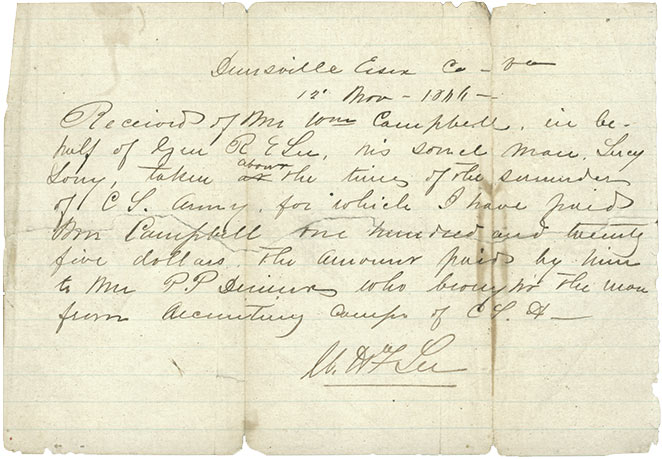 Dunnsville Essex Co - Va
12' Nov - 1866 -
Received of Mr Wm Campbell, in be-
half of Gen R. E Lee, his sorrel mare, Lucy
Long, taken about the time of the surrender
of C S. Army, for which I have paid
Mr Campbell one hundred and twenty
five dollars the amount paid by him
to Mr P. P. who brought the mare
from recruiting camps of C. S. A —
W. H F Lee